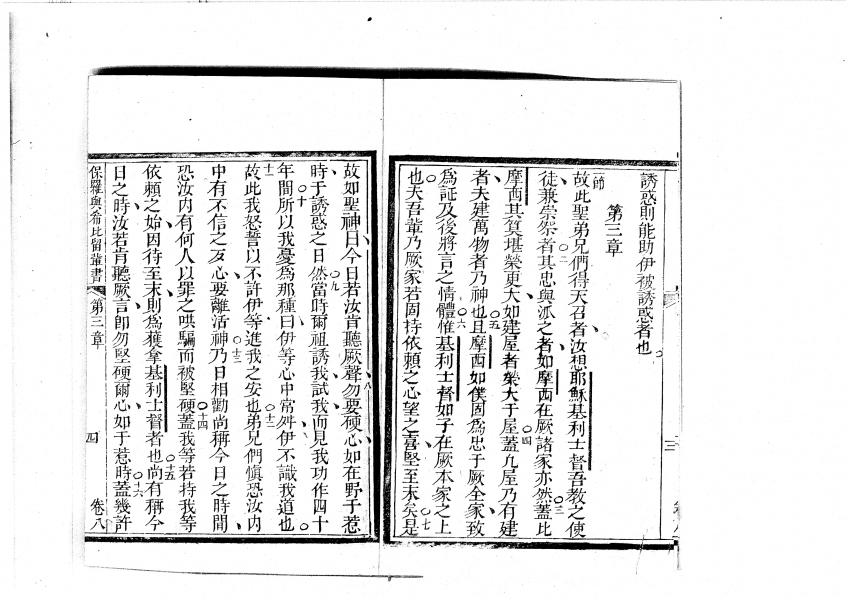 誘惑則能助伊被誘惑者也
第三章
節故此聖弟兄們得天召者汝想耶穌基利士督吾教之使
徒兼崇祭者其忠與派之者如摩西在厥諸家亦然蓋比
摩西其算堪榮更大如建屋者榮大于屋蓋凡屋乃有建
者夫建萬物者乃神也且摩西如僕固為忠于厥全家致
為証及後將言之情體惟基利士督如子在厥本家之上
也夫吾輩乃厥家若固持依賴之心望之喜堅至末矣是
故如聖神曰今日若汝肯聽厥聲勿要硬心如在野于惹
時于誘惑之日然當時爾祖誘我試我而見我功作四十
年間所以我憂為那種曰伊等心中常舛伊不識我道也
故此我怒誓以不許伊等進我之安也弟兄們慎恐汝內
中有不信之歹心要離活神乃日相勸尚稱今日之時間
恐汝內有何人以罪之哄騙而被堅硬蓋我等若持我等
依賴之始因待至末則為獲拿基利士督者也尚有稱今
日之時汝若肯聽厥言即勿堅硬爾心如于惹時蓋幾許
保羅與希比留輩書 第三章 四 卷八